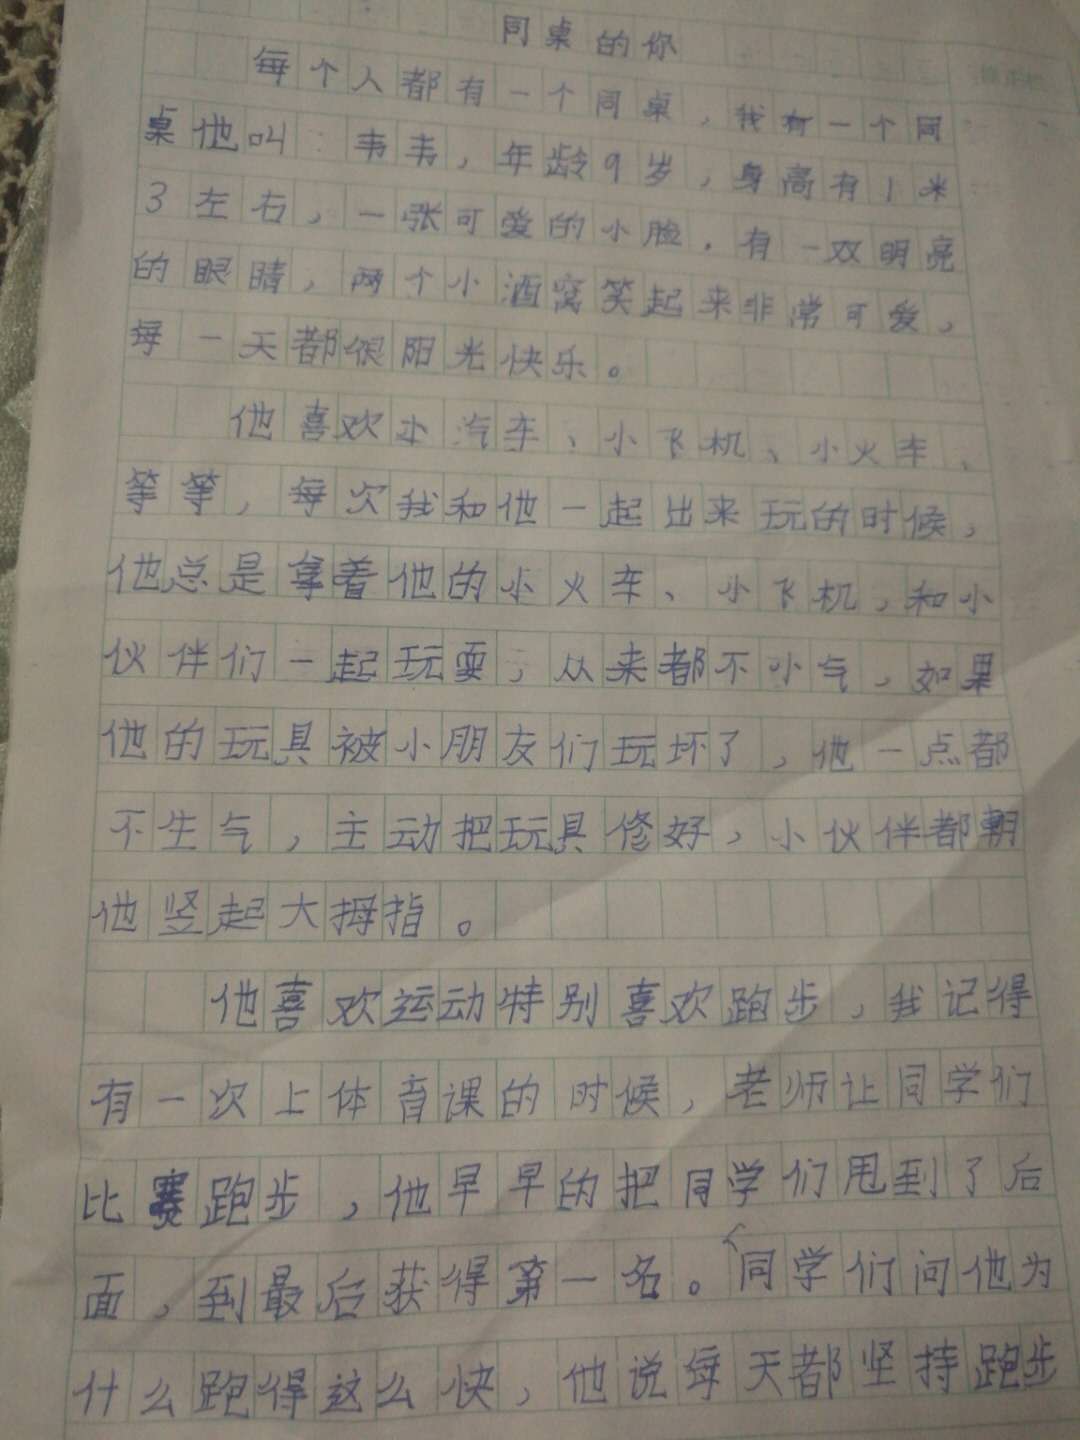 同桌的你
每个人都有一个同桌，我有一个同
桌他叫：韦韦，年龄9岁，身高有1米
3左右，一张可爱的小脸，有一双明亮
的眼睛，两个小酒窝笑起来非常可爱，
每一天都很阳光快乐。
他喜欢小汽车、小飞机、小火车、
等等，每次我和他一起出来玩的时候，
他总是拿着他的小火车、小飞机，和小
伙伴们一起玩耍，从来都不小气，如果
他的玩具被小朋友们玩坏了，他一点都
不生气，主动把玩具修好，小伙伴都朝
他竖起大拇指。
他喜欢运动特别喜欢跑步，我记得
有一次上体育课的时候，老师让同学们
比赛跑步，他早早的把同学们甩到了后
面，到最后获得第一名。同学们问他为
什么跑得这么快，他说每天都坚持跑步